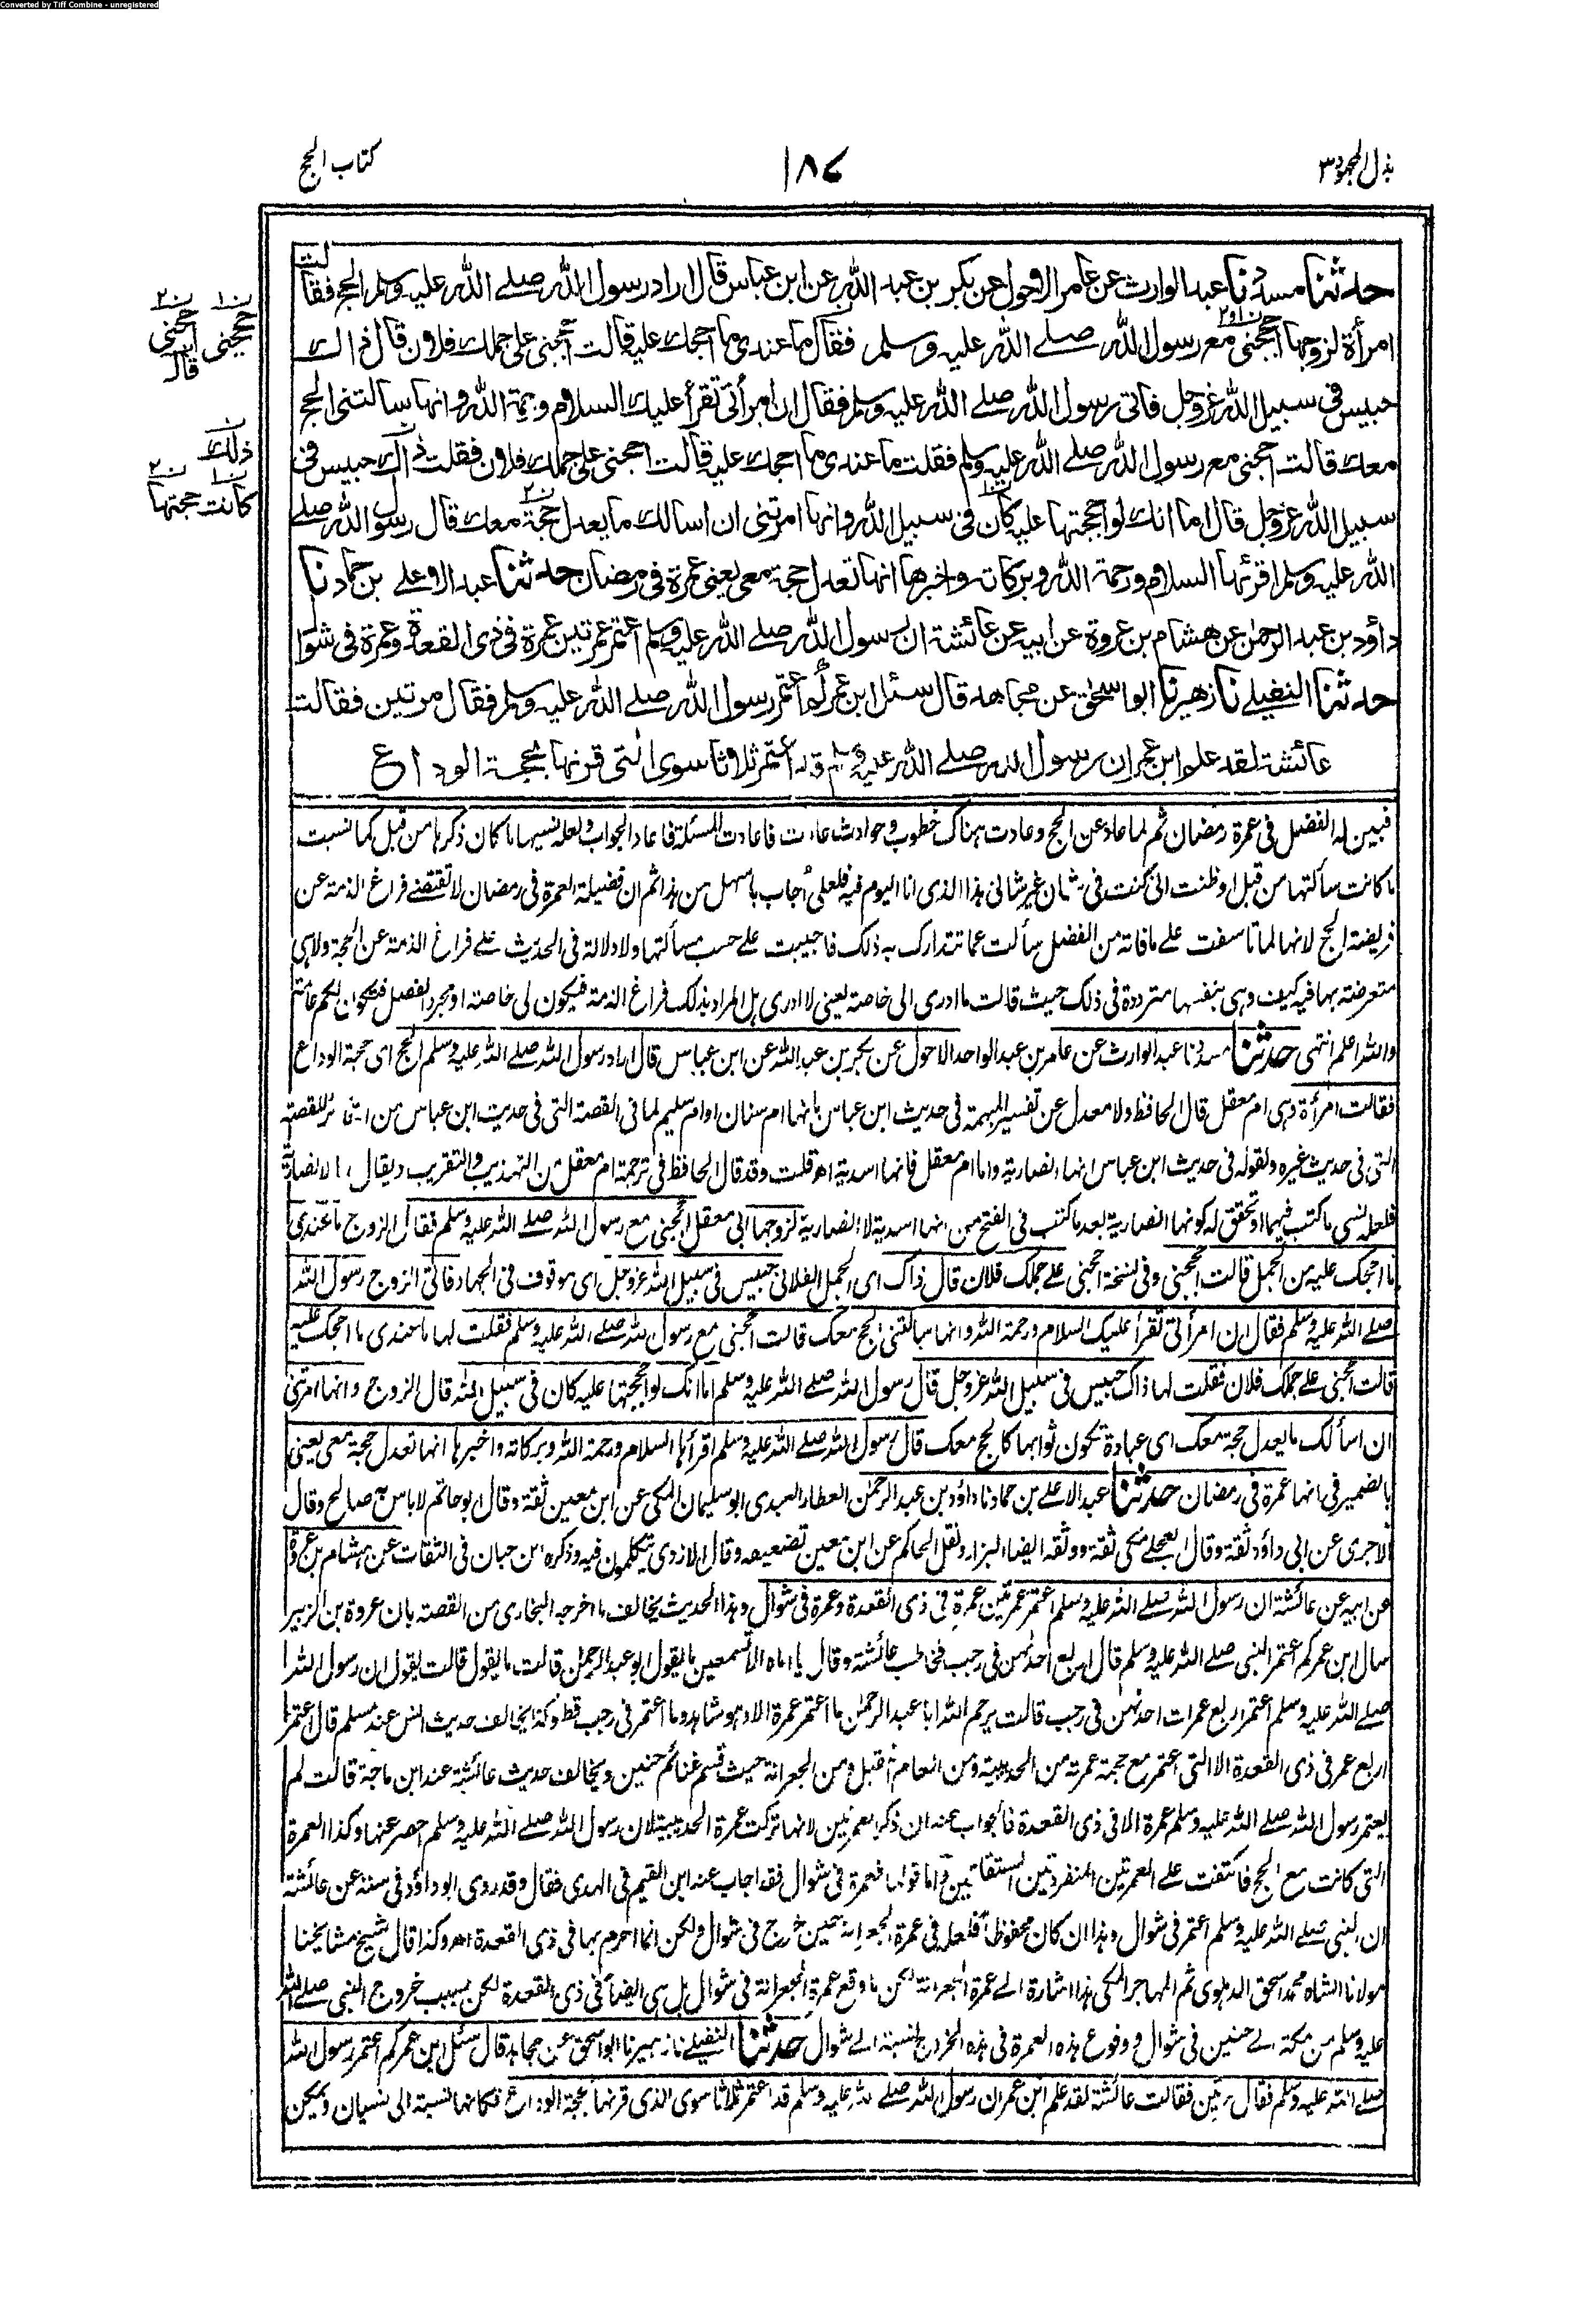 Converted by Tiff Combine - unregistered
بذل المجهود ٣
١٨٧
كتاب الحج
حدثنا مسدد نا عبد الوارث عن عامر الاحول عن بكر بن عبد الله عن ابن عباس قال اراد رسول الله صلے الله عليه وسلم الحج فقالت
امرأة لزوجها احججنى مع رسول الله صلے الله عليه وسلم فقال ما عندى ما احجك عليه قالت احججنى على جملك فلان قال ذاك
حبيس فى سبيل الله عز وجل فاتى رسول الله صلے الله عليه وسلم فقال ان امرأتى تقرأ عليك السلام ورحمة الله وانها سالتنى الحج
معك قالت احجنى مع رسول الله صلے الله عليه وسلم فقلت ما عندى ما احجك عليه قالت احجنى على جملك فلان فقلت ذاك حبيس فى
سبيل الله عز وجل قال اما انك لو احججتها عليه كان فى سبيل الله وانها امرتنى ان اسالك ما يعدل حجة معك قال رسول الله صلے
الله عليه وسلم اقرئها السلام ورحمة الله وبركاته واخبرها انها تعدل حجة معى يعنى عمرة فى رمضان حدثنا عبد الاعلے بن حماد نا
داؤد بن عبد الرحمٰن عن هشام بن عروة عن ابيه عن عائشة ان رسول الله صلے الله عليه وسلم اعتمر عمرتين عمرة فى ذى القعدة وعمرة فى شوال
حدثنا النفيلے نا زهير نا ابو اسحٰق عن مجاهد قال سئل ابن عمر كم اعتمر رسول الله صلے الله عليه وسلم فقال مرتين فقالت
عائشة لقد علم ابن عمر ان رسول الله صلے الله عليه وسلم قد اعتمر ثلاثا سوى التى قرنها بحجة الوداع
ن١ ن٢
حججينى حجنى
قال
ن١
ذلك
ن١ ن٢
كانت حجتها
فبين له الفضل فى عمرة رمضان ثم لما عاد عن الحج وعادت هناك خطوب وحوادث عادت فاعادت المسئلة فاعاد الجواب ولعله نسيها ما كان ذكرها من قبل كما نسيت
ما كانت سألتها من قبل او ظنت انى كنت فى شان غير شانى هذا الذى انا اليوم فيه فلعلى أجاب باسهل من هذا ثم ان فضيلة العمرة فى رمضان لا تقتضے فراغ الذمة عن
فريضة الحج لانها لما تأسفت علے ما فاته من الفضل سألت عما تتدارك به ذلك فاجيبت علے حسب مسألتها ولا دلالة فى الحديث علے فراغ الذمة عن الحجة ولا هى
متعرضة بها فيه كيف وهى بنفسها مترددة فى ذلك حيث قالت ما ادرى الى خاصة يعنى لا ادرى هل المراد بذلك فراغ الذمة فيكون لى خاصة او مجرد الفضل فيكون الحكم عامة
والله اعلم انتهى حدثنا مسدد نا عبد الوارث عن عامر بن عبد الواحد الاحول عن بكر بن عبد الله عن ابن عباس قال اراد رسول الله صلے الله عليه وسلم الحج اى حجة الوداع
فقالت امرأة وهى ام معقل قال الحافظ ولا معدل عن تفسير المبهمة فى حديث ابن عباس بانها ام سنان او ام سليم لما فى القصة التى فى حديث ابن عباس من للقصة
التى فى حديث غيره ولقوله فى حديث ابن عباس انها انصارية واما ام معقل فانها اسدية اھ قلت وقد قال الحافظ فى ترجمة ام معقل من التهذيب والتقريب ويقال الانصارية
فلعله نسى ما كتب فيهما او تحقق له كونها انصارية بعد ما كتب فى الفتح من انها اسدية لا انصارية لزوجها ابى معقل احججنى مع رسول الله صلے الله عليه وسلم فقال الزوج ما عندى
ما احجك عليه من الجمل قالت احججنى وفى نسخة احجنى علے جملك فلان قال ذاك اى الجمل الفلانى حبيس فى سبيل الله عز وجل اى موقوف فى الجهاد فاتى الزوج رسول الله
صلے الله عليه وسلم فقال ان امرأتى تقرأ عليك السلام ورحمة الله وانها سألتنى الحج معك قالت احججنى مع رسول الله صلے الله عليه وسلم فقلت لها ما عندى ما احجك عليه
قالت احجنى علے جملك فلان فقلت لها ذاك حبيس فى سبيل الله عز وجل قال رسول الله صلے الله عليه وسلم اما انك لو احججتها عليه كان فى سبيل الله قال الزوج وانها امرتنى
ان اسألك ما يعدل حجة معك اى عبادة يكون ثوابها كالحج معك قال رسول الله صلے الله عليه وسلم اقرأها السلام ورحمة الله وبركاته واخبرها انها تعدل حجة معى يعنى
بالضمير فى انها عمرة فى رمضان حدثنا عبد الاعلے بن حماد نا داؤد بن عبد الرحمٰن العطار العبدى ابو سليمان المكى عن ابن معين ثقة وقال ابو حاتم لا باس به صالح وقال
الآجرى عن ابى داؤد ثقة وقال العجلے مكى ثقة ووثقه ايضا البزار ونقل الحاكم عن ابن معين تضعيفه وقال الازدى يتكلمون فيه وذكره ابن حبان فى الثقات عن هشام بن عروة
عن ابيه عن عائشة ان رسول الله صلے الله عليه وسلم اعتمر عمرتين عمرة فى ذى القعدة وعمرة فى شوال وهذا الحديث يخالف ما اخرجه البخارى من القصة بان عروة بن الزبير
سال ابن عمر كم اعتمر النبى صلے الله عليه وسلم قال اربع احداهن فى رجب فخاطب عائشة وقال يا اماه الا تسمعين ما يقول ابو عبد الرحمٰن قالت ما يقول قالت يقول ان رسول الله
صلے الله عليه وسلم اعتمر اربع عمرات احداهن فى رجب قالت يرحم الله ابا عبد الرحمٰن ما اعتمر عمرة الا وهو شاهد وما اعتمر فى رجب قط وكذا يخالف حديث انس عند مسلم قال اعتمر
اربع عمر فى ذى القعدة الا التى اعتمر مع حجة عمرته من الحديبية ومن العام المقبل ومن الجعرانة حيث قسم غنائم حنين ويخالف حديث عائشة عند ابن ماجة قالت لم
يعتمر رسول الله صلے الله عليه وسلم عمرة الا فى ذى القعدة فالجواب عنه ان ذكر العمرتين لانها تركت عمرة الحديبية لان رسول الله صلے الله عليه وسلم احصر عنها وكذا العمرة
التى كانت مع الحج فاكتفت علے العمرتين المنفردتين المستقلتين واما قولها فعمرة فى شوال فقد اجاب عنه ابن القيم فى الهدى فقال وقد روى ابو داؤد فى سننه عن عائشة
ان النبى صلے الله عليه وسلم اعتمر فى شوال وهذا ان كان محفوظا فلعله فى عمرة الجعرانة حين خرج فى شوال ولكن انما احرم بها فى ذى القعدة اھ وكذا قال شيخ مشايخنا
مولانا الشاه محمد اسحٰق الدهلوى ثم المهاجر المكى هذا اشارة الے عمرة الجعرانة لكن ما وقع عمرة الجعرانة فى شوال بل هى ايضا فى ذى القعدة لكن بسبب خروج النبى صلے الله
عليه وسلم من مكة الے حنين فى شوال ووقوع هذه العمرة فى هذه الخروج نسبت الے شوال حدثنا النفيلے نا زهير نا ابو اسحٰق عن مجاهد قال سئل ابن عمر كم اعتمر رسول الله
صلے الله عليه وسلم فقال مرتين فقالت عائشة لقد علم ابن عمر ان رسول الله صلے الله عليه وسلم قد اعتمر ثلاثا سوى الذى قرنها بحجة الوداع فكانها نسبته الى نسيان ويمكن